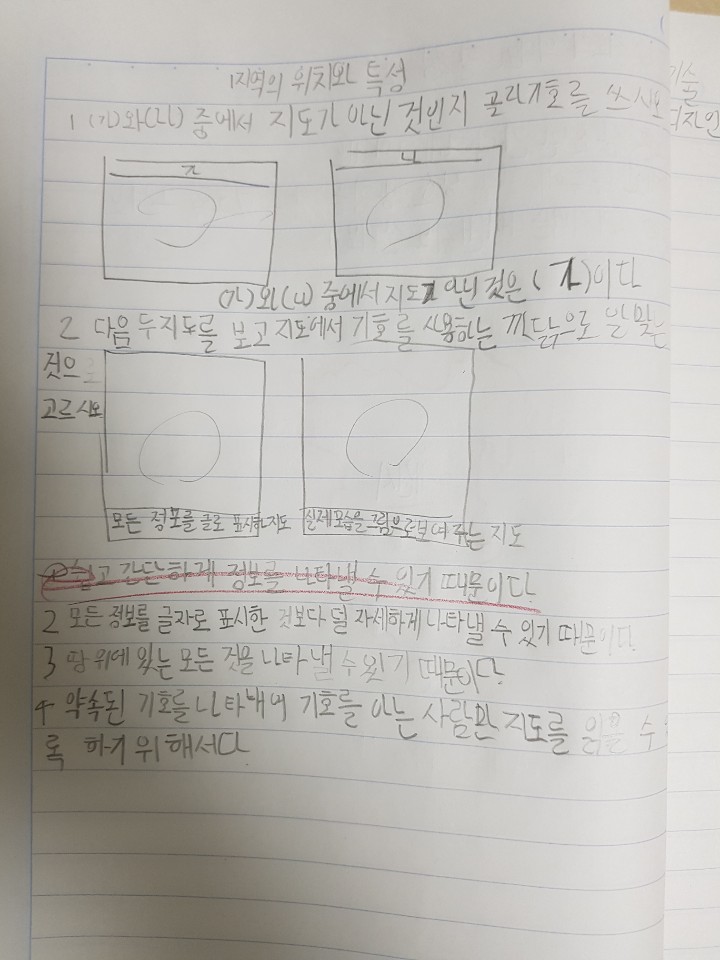 1지역의 위치와 특성
1 (가)와(나) 중에서 지도가 아닌 것인지 골라기호를 쓰시오
가
나
(가)와(나) 중에서 지도가 아닌 것은 (가)이다
2 다음 두지도를 보고 지도에서 기호를 사용하는 까닭으로 알맞는
것으
고르시오
모든 정보를 글로 표시한지도
실제모습을 그림으로보여주는 지도
1 쉽고 간단하게 정보를 나타낼 수 있기 때문이다
2 모든 정보를 글자로 표시한 것보다 덜 자세하게 나타낼 수 있기 때문이다
3 땅 위에 있는 모든 것을 나타낼 수있기 때문이다
4 약속된 기호를 나타내어 기호를 아는 사람만 지도를 읽을 수
록 하기 위해서다
기술